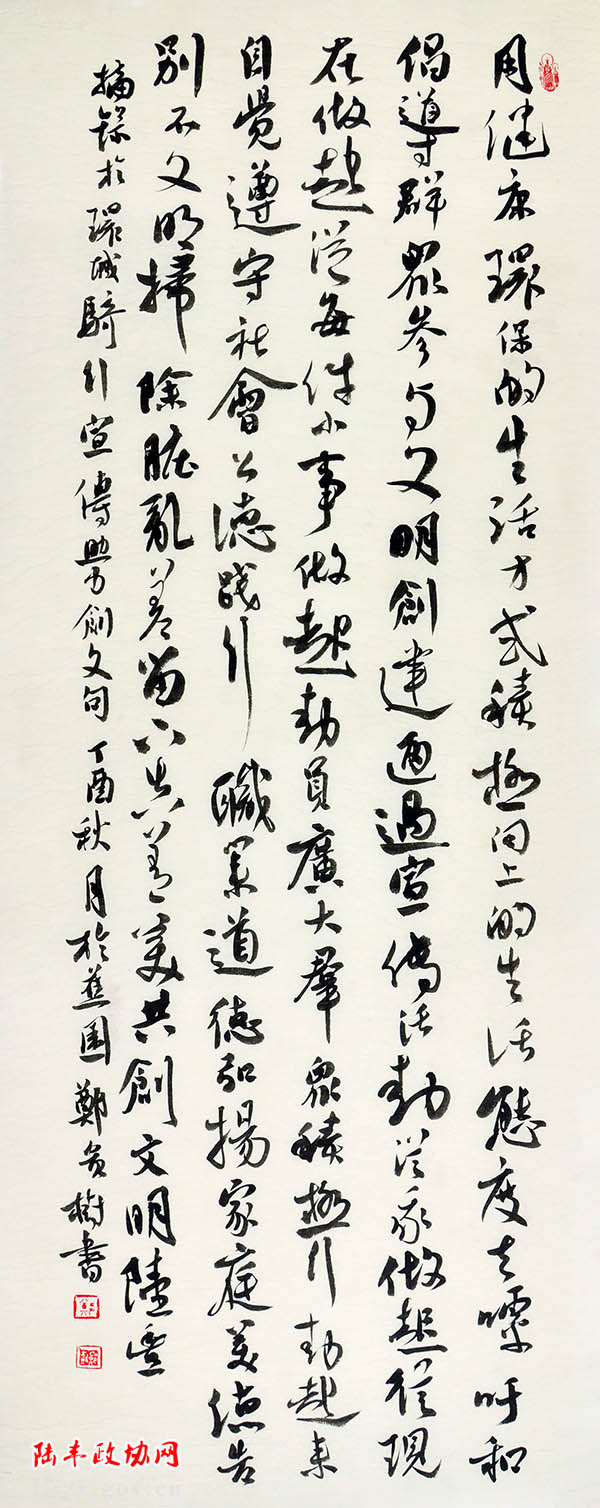 用健康環保的生活方式積極向上的生活態度去呼和
倡導群眾參与文明創建通過宣傳活動從我做起從現
在做起從每件小事做起動員廣大羣眾積極行動起来
自覺遵守社會公德踐行職業道德弘揚家庭美德告
別不文明掃除脏亂差留下真善美共創文明陸豐
摘錄於環城騎行宣傳助力創文句丁酉秋月於蕉園鄭樹書
陆丰政协网